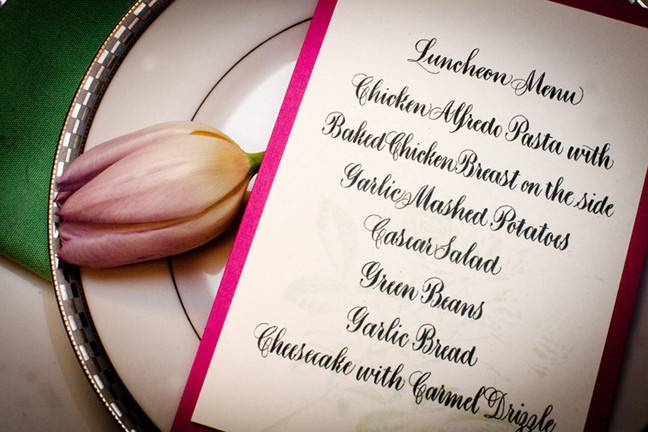 Luncheon Menu
Chicken Alfredo Pasta with
Baked Chicken Breast on the side
Garlic Mashed Potatoes
Casear Salad
Green Beans
Garlic Bread
Cheesecake with Carmel Drizzle